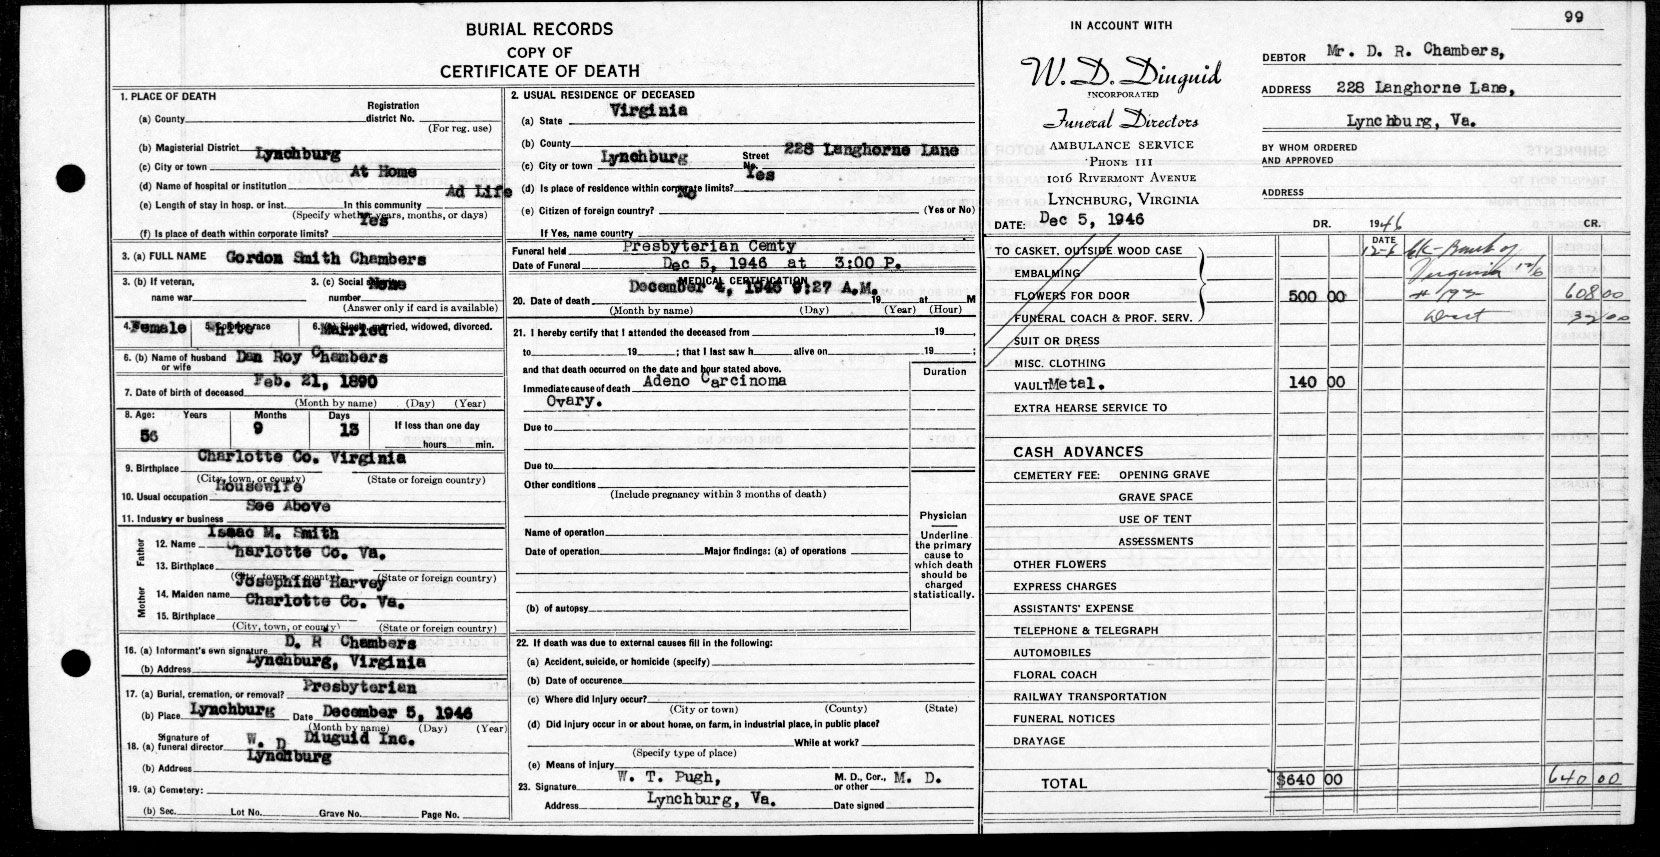 BURIAL RECORDS
COPY OF
CERTIFICATE OF DEATH
1. PLACE OF DEATH
Registration
(a) County district No.
(For reg. use)
(b) Magisterial District
Lynchburg
(c) City or town
At Home
(d) Name of hospital or institution
Ad Life
(e) Length of stay in hosp. or inst. In this community
(Specify whether years, months, or days)
Yes
(f) Is place of death within corporate limits?
3. (a) FULL NAME Gordon Smith Chambers
3. (b) If veteran, 3. (c) Social None
name war number
(Answer only if card is available)
4. Female 5. Color or race White 6. (a) Single, married, widowed, divorced. Married
6. (b) Name of husband Dan Roy Chambers
or wife
Feb. 21, 1890
7. Date of birth of deceased
(Month by name) (Day) (Year)
8. Age: Years Months Days If less than one day
56 9 13
hours min.
Charlotte Co. Virginia
9. Birthplace
(City, town, or county) (State or foreign country)
Housewife
10. Usual occupation
See Above
11. Industry or business
Father
Isaac M. Smith
12. Name
Charlotte Co. Va.
13. Birthplace
(City, town or county) (State or foreign country)
Mother
Josephine Harvey
14. Maiden name
Charlotte Co. Va.
15. Birthplace
(City, town, or county) (State or foreign country)
D. R Chambers
16. (a) Informant's own signature
Lynchburg, Virginia
(b) Address
Presbyterian
17. (a) Burial, cremation, or removal?
(b) Place Lynchburg Date December 5, 1946
(Month by name) (Day) (Year)
Signature of W. D Diuguid Inc.
18. (a) funeral director
Lynchburg
(b) Address
19. (a) Cemetery:
(b) Sec. Lot No. Grave No. Page No.
2. USUAL RESIDENCE OF DECEASED
Virginia
(a) State
(b) County
228 Langhorne Lane
(c) City or town Lynchburg Street No.
Yes
(d) Is place of residence within corporate limits?
No
(e) Citizen of foreign country? (Yes or No)
If Yes, name country
Funeral held Presbyterian Cemty
Date of Funeral Dec 5, 1946 at 3:00 P.
MEDICAL CERTIFICATION
December 4, 1946 9:27 A.M.
20. Date of death 19 at M
(Month by name) (Day) (Year) (Hour)
21. I hereby certify that I attended the deceased from 19 ,
to 19 ; that I last saw h alive on 19 ;
and that death occurred on the date and hour stated above.
Duration
Immediate cause of death Adeno Carcinoma
Ovary.
Due to
Due to
Other conditions
(Include pregnancy within 3 months of death)
Physician
Underline the primary cause to which death should be charged statistically.
Name of operation
Date of operation Major findings: (a) of operations
(b) of autopsy
22. If death was due to external causes fill in the following:
(a) Accident, suicide, or homicide (specify)
(b) Date of occurence
(c) Where did injury occur?
(City or town) (County) (State)
(d) Did injury occur in or about home, on farm, in industrial place, in public place?
While at work?
(Specify type of place)
(e) Means of injury
W. T. Pugh, M. D., Cor., M. D.
23. Signature or other
Lynchburg, Va.
Address Date signed
99
IN ACCOUNT WITH
W. D. Diuguid
INCORPORATED
Funeral Directors
AMBULANCE SERVICE
PHONE 111
1016 RIVERMONT AVENUE
LYNCHBURG, VIRGINIA
DATE: Dec 5, 1946
DEBTOR Mr. D. R. Chambers,
ADDRESS 228 Langhorne Lane,
Lynchburg, Va.
BY WHOM ORDERED
AND APPROVED
ADDRESS
DR. 1946 CR.
DATE
TO CASKET, OUTSIDE WOOD CASE 12-6 Ck - Bank of
EMBALMING Virginia 12/6
FLOWERS FOR DOOR 500 00 608 00
FUNERAL COACH & PROF. SERV. 32 00
SUIT OR DRESS
MISC. CLOTHING
VAULT Metal. 140 00
EXTRA HEARSE SERVICE TO
CASH ADVANCES
CEMETERY FEE: OPENING GRAVE
GRAVE SPACE
USE OF TENT
ASSESSMENTS
OTHER FLOWERS
EXPRESS CHARGES
ASSISTANTS' EXPENSE
TELEPHONE & TELEGRAPH
AUTOMOBILES
FLORAL COACH
RAILWAY TRANSPORTATION
FUNERAL NOTICES
DRAYAGE
TOTAL $640 00 640 00